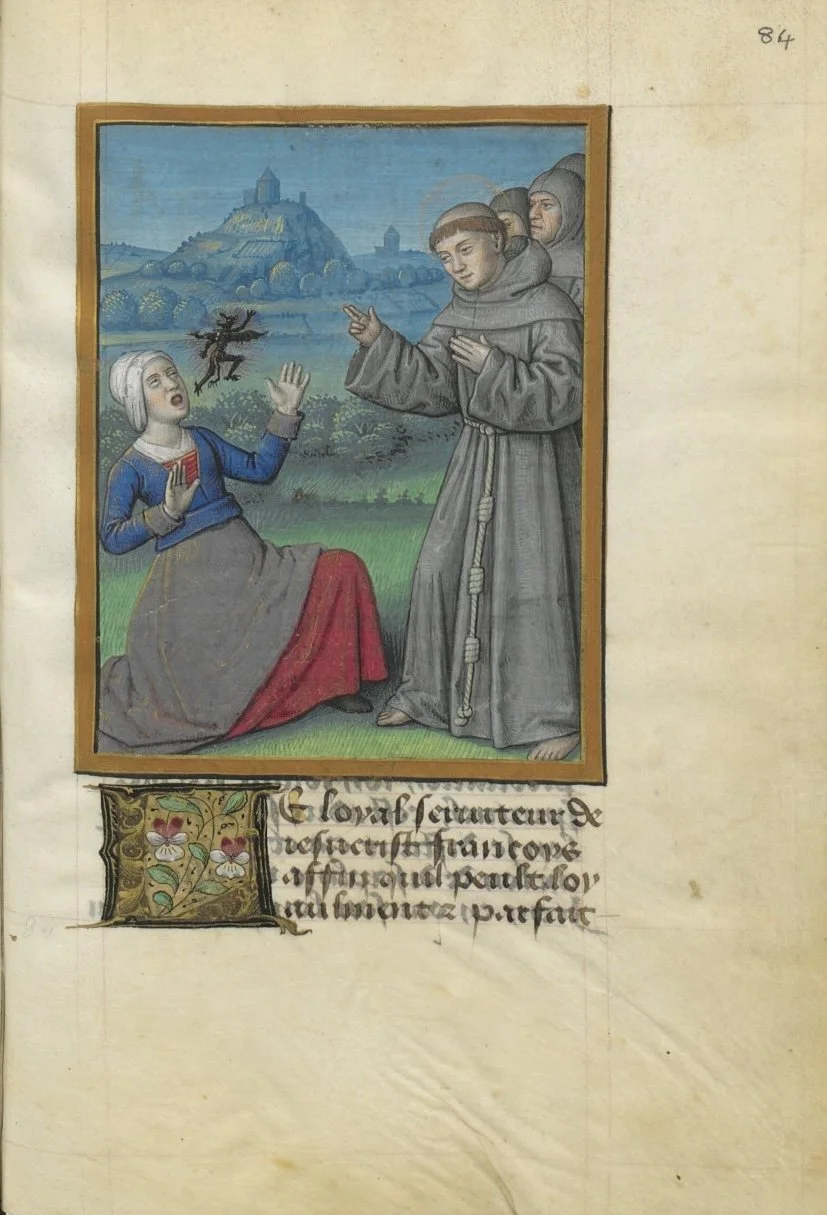 84
Le loyal seruiteur de
iesucrist francoys
affin quil peult loy
aulment et parfait